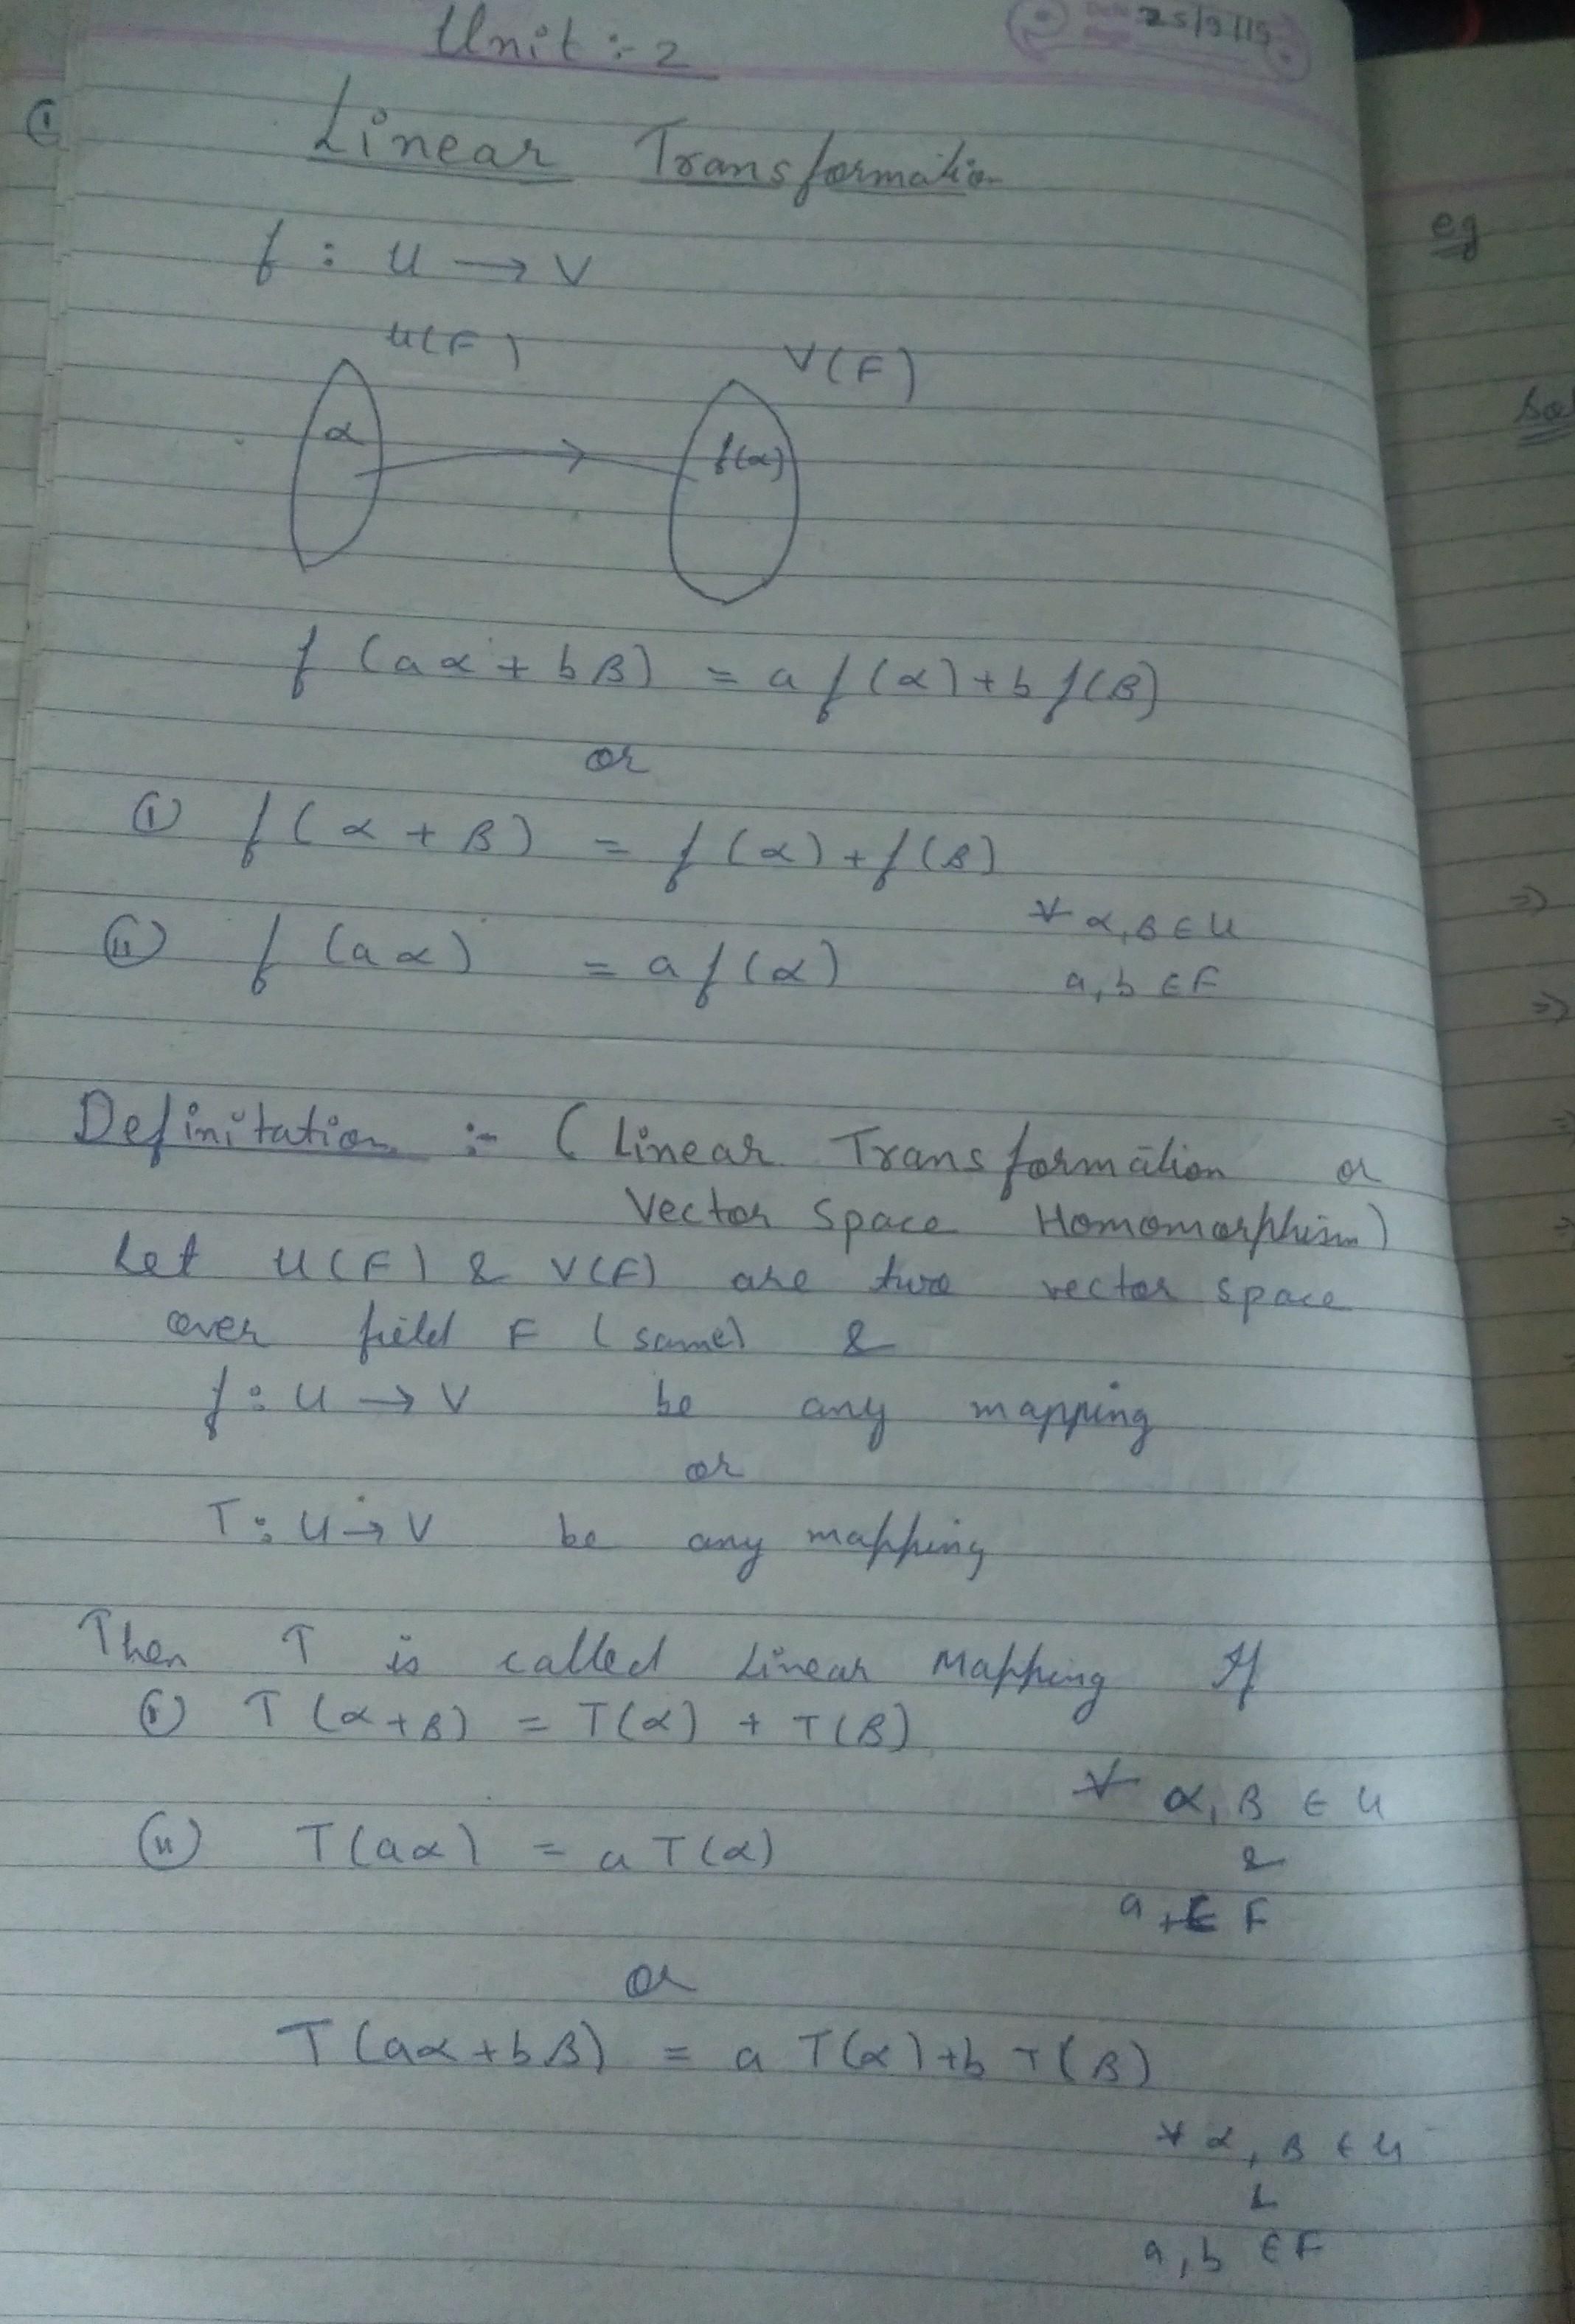 Unit :- 2
25/9/15
①
Linear Transformation
f : U → V
U(F)
V(F)
α
f(α)
f (aα + bβ) = a f(α) + b f(β)
or
(i) f(α + β) = f(α) + f(β)
∀ α, β ∈ U
(ii) f (aα) = a f(α)
a, b ∈ F
Definitation :- ( Linear Transformation or
Vector Space Homomorphism)
Let U(F) & V(F) are two vector space
over field F (same) &
f : U → V be any mapping
or
T : U → V be any mapping
Then T is called Linear Mapping If
(i) T (α+β) = T(α) + T(β)
∀ α, β ∈ U
(ii) T(aα) = a T(α)
&
a ∈ F
or
T (aα + bβ) = a T(α) + b T(β)
∀ α, β ∈ U
&
a, b ∈ F
eg
⇒
⇒
⇒